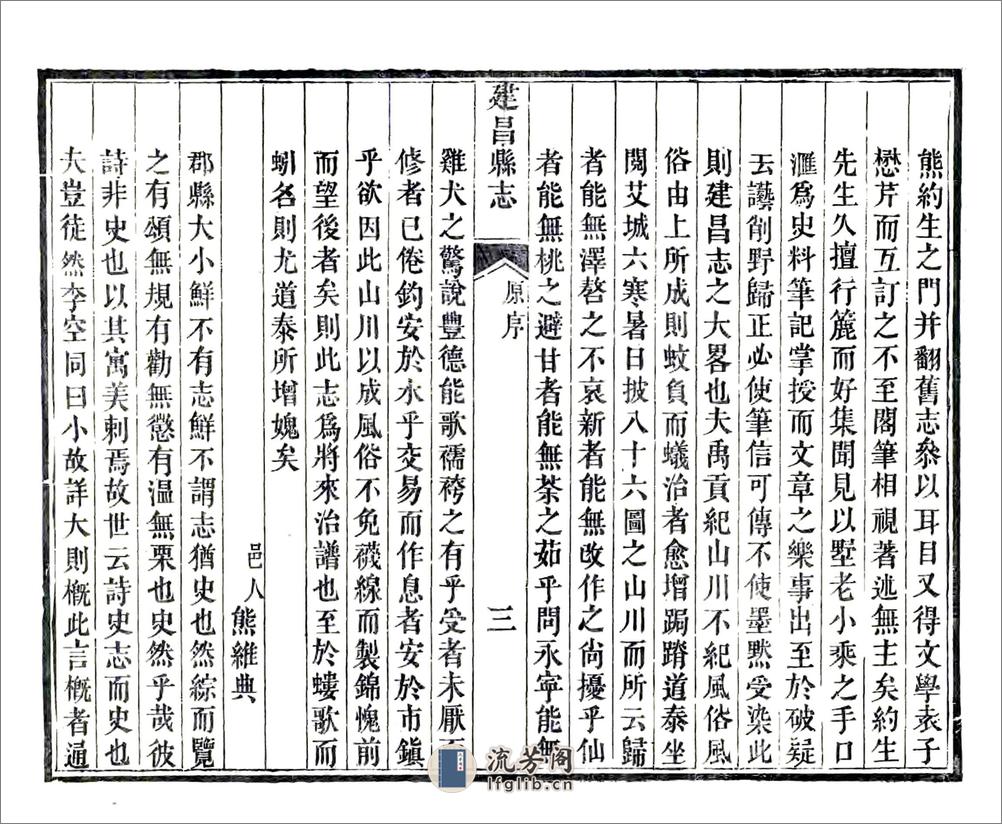 熊約生之門并翻舊志叅以耳目又得文學袁子
懋芹而互訂之不至閣筆相視著述無主矣約生
先生久擅行簏而好集聞見以墅老小乘之手口
滙為史料筆記掌授而文章之樂事出至於破疑
云讖削野歸正必使筆信可傳不使墨黙受染此
則建昌志之大畧也夫禹貢紀山川不紀風俗風
俗由上所成則蚊負而蟻治者愈增跼蹐道泰坐
閱艾城六寒暑日披八十六圖之山川而所云歸
者能無澤嗸之不哀新者能無改作之尚擾乎仙
者能無桃之避甘者能無荼之茹乎問永寜能無
建昌縣志
原序
三
雞犬之驚說豐德能歌襦袴之有乎受者未厭而
修者已倦釣安於水乎交易而作息者安於市鎮
乎欲因此山川以成風俗不免襪線而製錦愧前
而望後者矣則此志為將來治譜也至於螻歌而
蚓名則尤道泰所增媿矣
邑人熊維典
郡縣大小鮮不有志鮮不謂志猶史也然綜而覽
之有頌無規有勸無懲有溫無栗也史然乎哉彼
詩非史也以其寓美刺焉故世云詩史志而史也
大豈徒然李空同曰小故詳大則槪此言槪者通
流芳阁
lfglib.cn